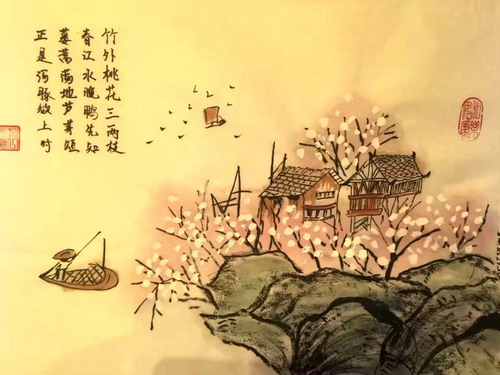 竹外桃花三两枝
春江水暖鸭先知
蒌蒿满地芦芽短
正是河豚欲上时